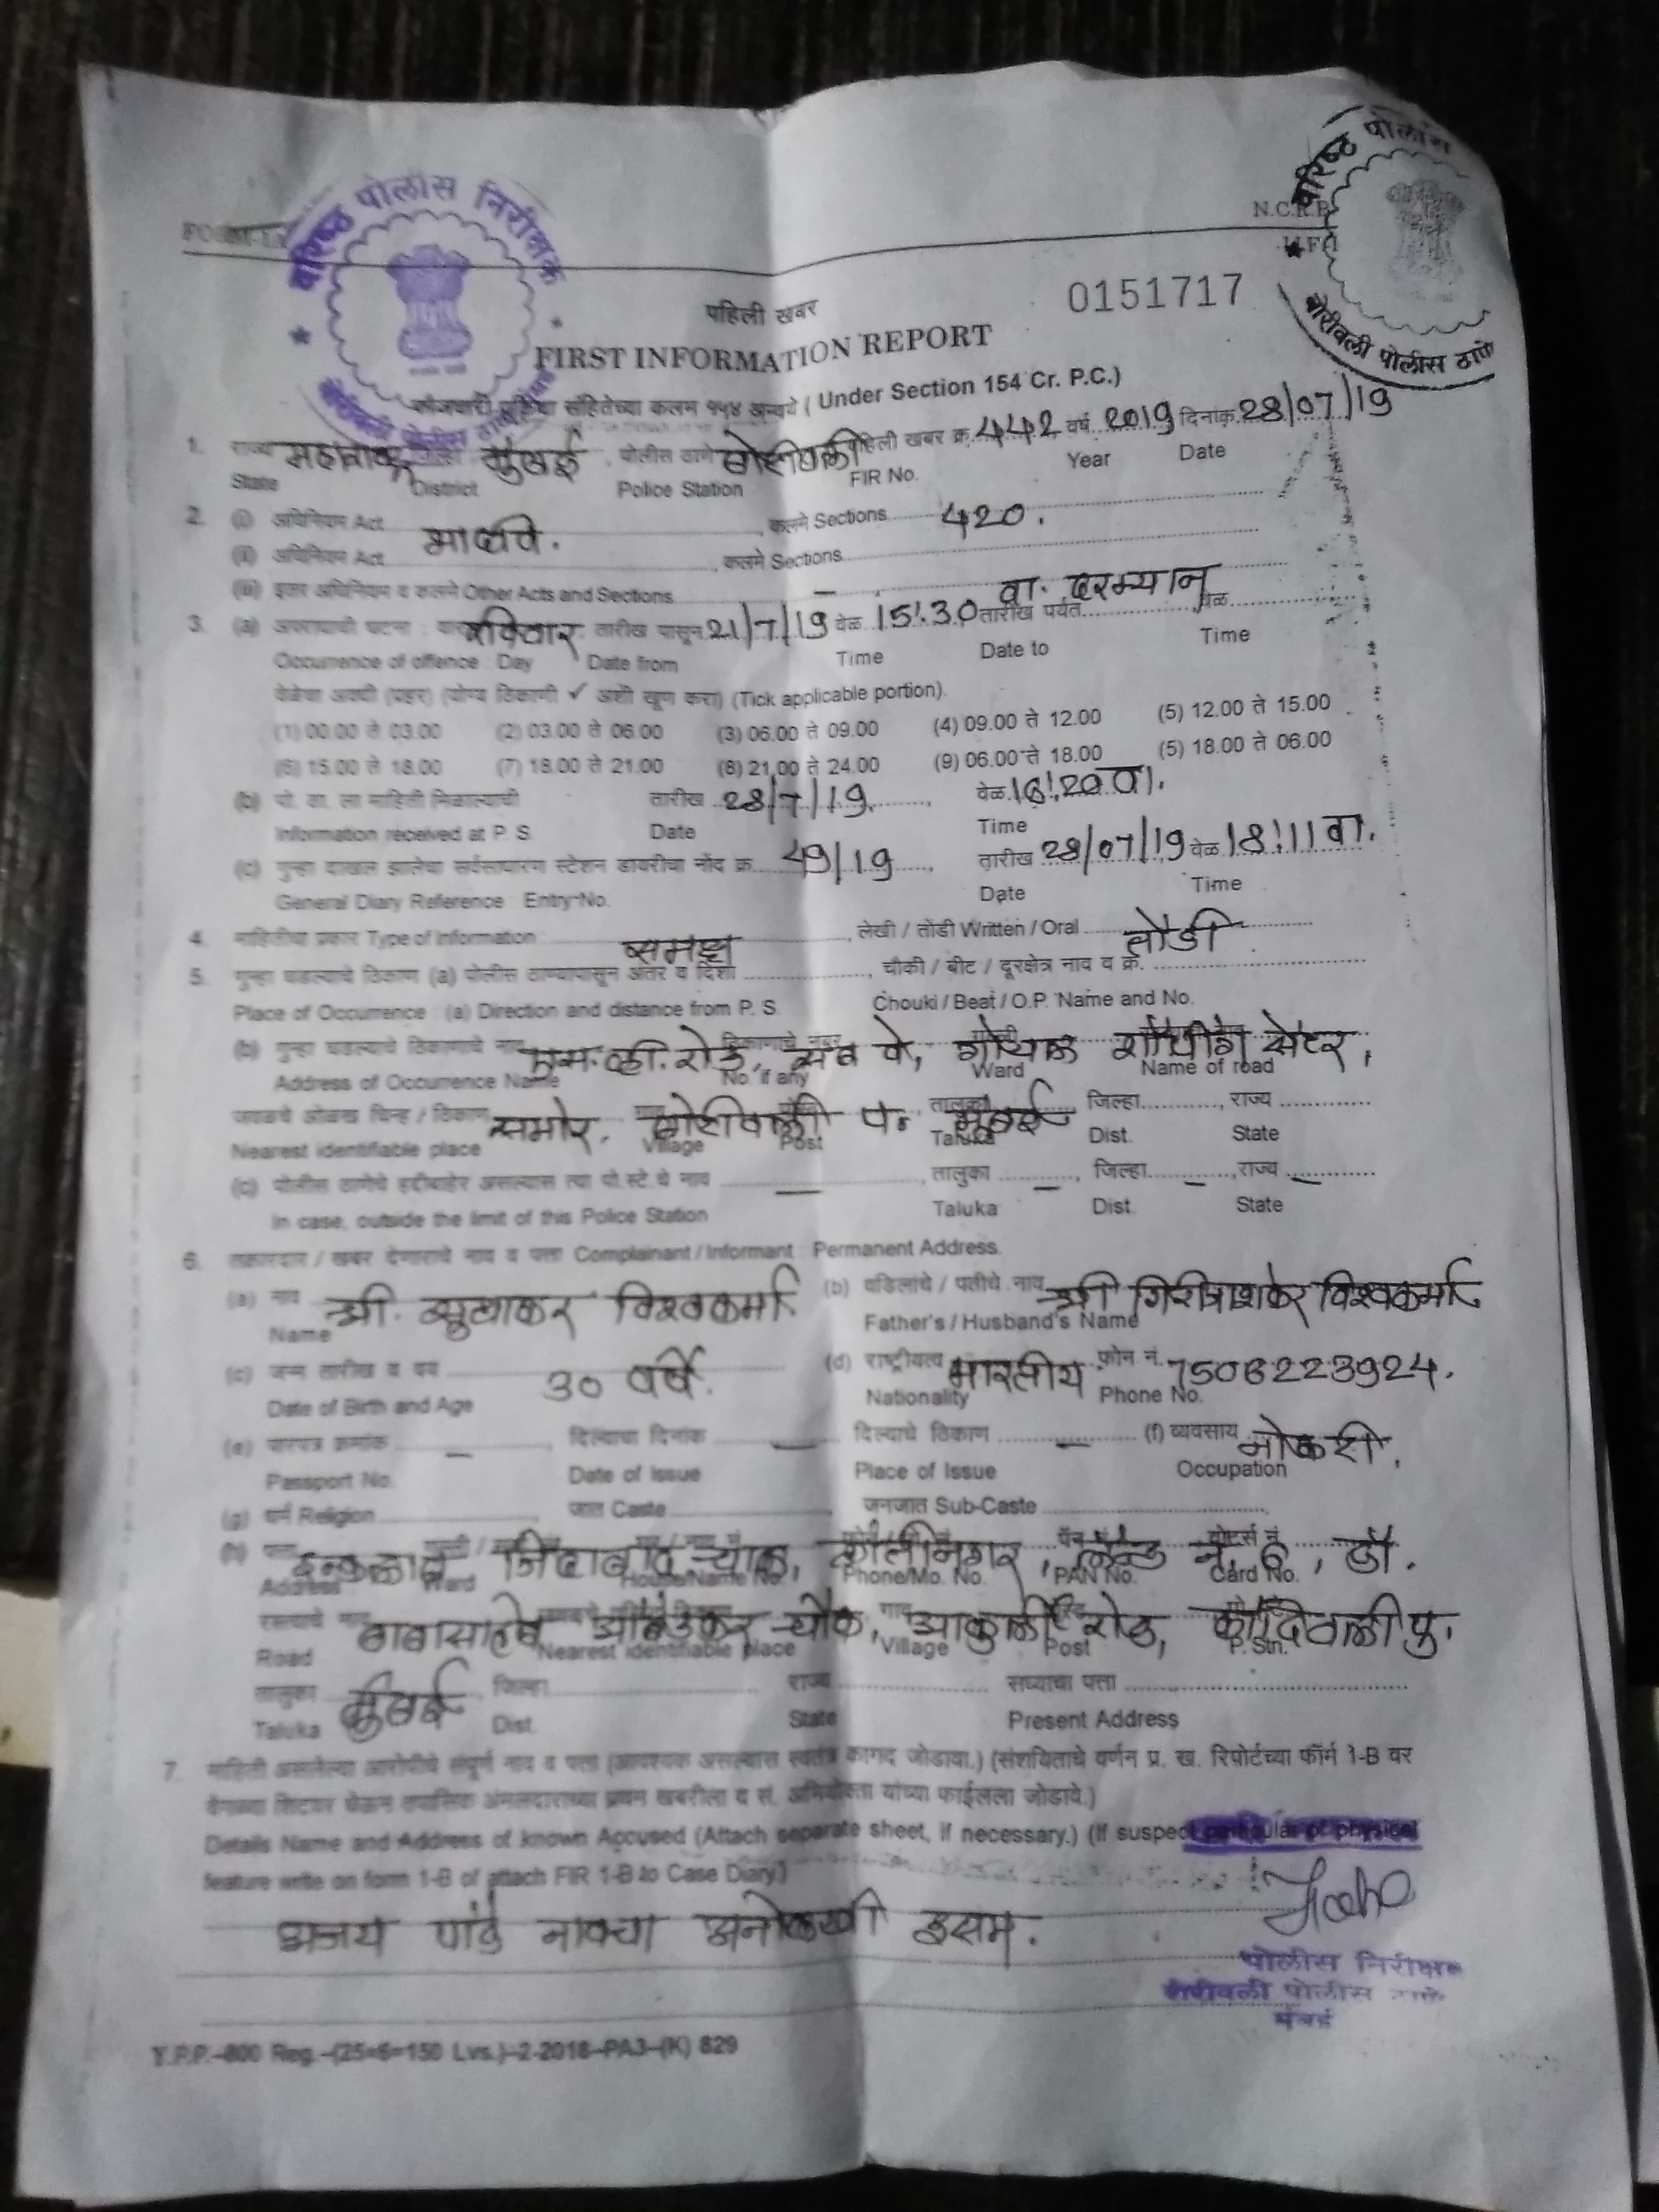 वरिष्ठ पोलीस निरीक्षक
वरिष्ठ पोलीस
बोरीवली पोलीस ठाणे
N.C.R.B
पहिली खबर
0151717
FIRST INFORMATION REPORT
फौजदारी प्रक्रिया संहितेच्या कलम १५४ अन्वये ( Under Section 154 Cr. P.C.)
1. राज्य महाराष्ट्र मुंबई पोलीस ठाणे बोरीवली पहिली खबर क्र. 442 वर्ष 2019 दिनांक 28/07/19
State District Police Station FIR No. Year Date
2. (i) अधिनियम Act भादवि. , कलमे Sections 420.
(ii) अधिनियम Act , कलमे Sections
(iii) इतर अधिनियम व कलमे Other Acts and Sections – वा. दरम्यान
3. (a) अपराधाची घटना : रविवार तारीख पासून 21/7/19 वेळ 15:30 तारीख पर्यंत वेळ
Occurrence of offence : Day Date from Time Date to Time
वेळेचा अवधी (प्रहर) (योग्य ठिकाणी ✓ अशी खूण करा) (Tick applicable portion).
(1) 00.00 ते 03.00 (2) 03.00 ते 06.00 (3) 06.00 ते 09.00 (4) 09.00 ते 12.00 (5) 12.00 ते 15.00
(6) 15.00 ते 18.00 (7) 18.00 ते 21.00 (8) 21.00 ते 24.00 (9) 06.00 ते 18.00 (5) 18.00 ते 06.00
(b) पो. ठा. ला माहिती मिळाल्याची तारीख 28/7/19. , वेळ 16:20 वा.
Information received at P. S. Date Time
(c) गुन्हा दाखल झालेचा सर्वसाधारण स्टेशन डायरीचा नोंद क्र. 49/19 , तारीख 28/07/19 वेळ 18:11 वा.
General Diary Reference Entry No. Date Time
4. माहितीचा प्रकार Type of Information समक्ष , लेखी / तोंडी Written / Oral तोंडी
5. गुन्हा घडल्याचे ठिकाण (a) पोलीस ठाण्यापासून अंतर व दिशा , चौकी / बीट / दूरक्षेत्र नाव व क्र.
Place of Occurrence : (a) Direction and distance from P. S. Chouki / Beat / O.P. Name and No.
(b) गुन्हा घडल्याचे ठिकाणाचे नाव एस.व्ही.रोड, सब वे, गोयल शॉपींग सेंटर,
Address of Occurrence Name No. if any Ward Name of road
जवळचे ओळख चिन्ह / ठिकाण समोर, बोरीवली प. मुंबई जिल्हा , राज्य
Nearest identifiable place Village Post Taluka Dist. State
(c) पोलीस ठाणेचे हद्दीबाहेर असल्यास त्या पो.स्टे.चे नाव – , तालुका – , जिल्हा – , राज्य –
In case, outside the limit of this Police Station Taluka Dist. State
6. तक्रारदार / खबर देणाराचे नाव व पत्ता Complainant / Informant : Permanent Address.
(a) नाव श्री. सुधाकर विश्वकर्मा (b) वडिलांचे / पतीचे नाव श्री विश्वकर्मा
Name Father's / Husband's Name
(c) जन्म तारीख व वय 30 वर्षे. (d) राष्ट्रीयत्व भारतीय फोन नं. 7506223924.
Date of Birth and Age Nationality Phone No.
(e) पारपत्र क्रमांक – , दिल्याचा दिनांक – दिल्याचे ठिकाण – (f) व्यवसाय नोकरी.
Passport No. Date of Issue Place of Issue Occupation
(g) धर्म Religion जात Caste , जनजात Sub-Caste
(h) इन्कलाब जिंदाबाद चाळ, नं. 6, डॉ.
Address Ward House/Name No. Phone/Mo. No. PAN No. Card No.
रस्त्याचे नाव बाबासाहेब आंबेडकर चौक, आकुर्ली रोड, कांदिवली पु.
Road Nearest identifiable place Village Post P. Stn.
तालुका मुंबई जिल्हा राज्य सध्याचा पत्ता
Taluka Dist. State Present Address
7. माहिती असलेल्या आरोपीचे संपूर्ण नाव व पत्ता (आवश्यक असल्यास स्वतंत्र कागद जोडावा.) (संशयिताचे वर्णन प्र. ख. रिपोर्टच्या फॉर्म 1-B वर
वेगळ्या शिटवर घेऊन तपासिक अंमलदाराच्या प्रथम खबरीला व सं. अभियोक्ता यांच्या फाईलला जोडावे.)
Details Name and Address of known Accused (Attach separate sheet, if necessary.) (If suspect particular of physical
feature write on form 1-B of attach FIR 1-B to Case Diary.)
अजय पांडे नावचा अनोळखी इसम.
पोलीस निरीक्षक
बोरीवली पोलीस ठाणे
मुंबई
Y.P.P.–800 Reg.–(25×6=150 Lvs.)–2-2018–PA3–(K) 829